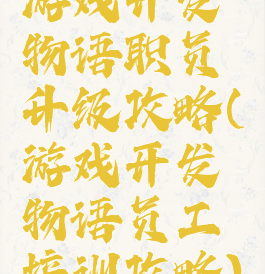 游戏开发
物语职员
升级攻略(
游戏开发
物语员工
培训攻略)